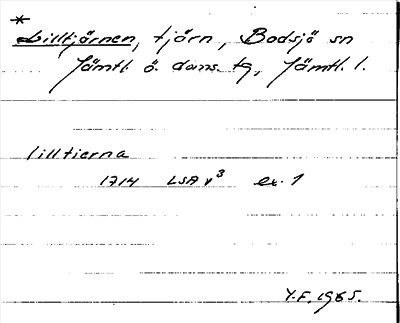 *
Lilltjärnen, tjärn, Bodsjö sn
Jämtl. ö. doms. tg, Jämtl. l.
lilltierna
1714 LSA v³ ex. 1
Y.F. 1965.